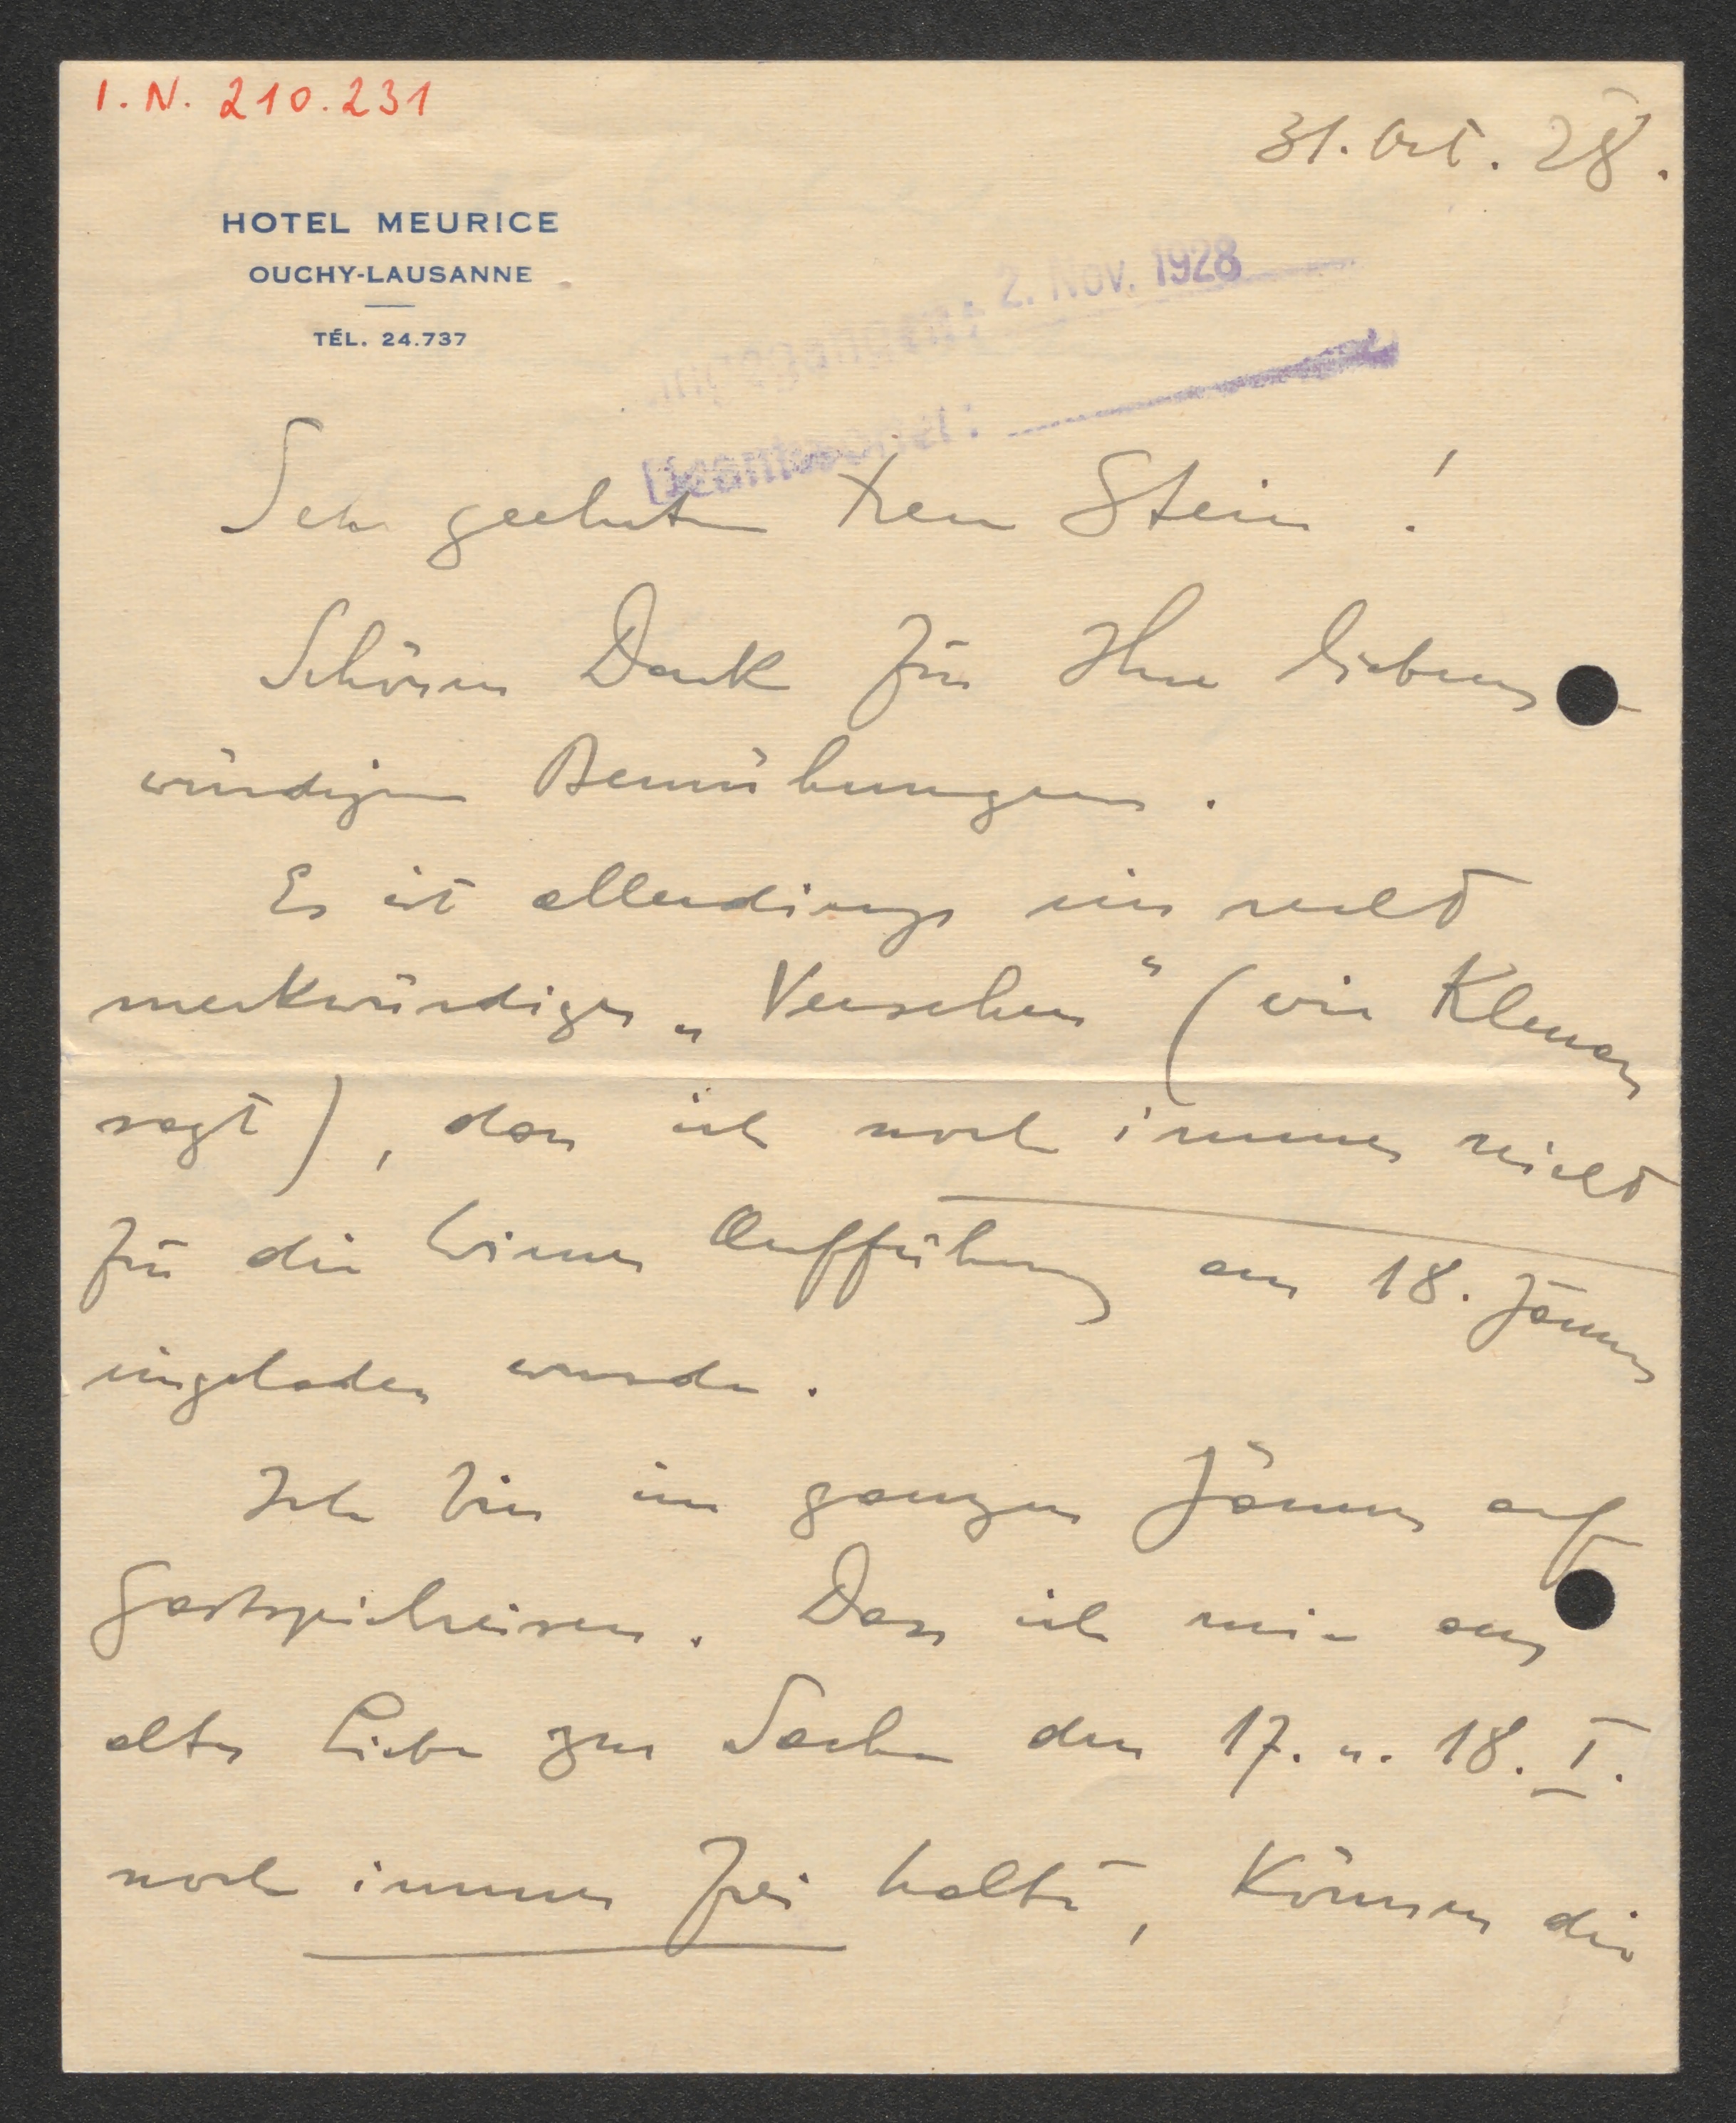 I. N. 210.231
31. Oct. 28.
HOTEL MEURICE
OUCHY-LAUSANNE
TÉL. 24.737
Eingegangen: 2. Nov. 1928
Beantwortet:
Sehr geehrter Herr Stein!
Schönen Dank für Ihre liebens-
würdigen Bemühungen.
Es ist allerdings ein recht
merkwürdiges „Versehen" (wie Klenau
sagt), dass ich noch immer nicht
für die Wiener Aufführung am 18. Jänner
eingeladen wurde.
Ich bin im ganzen Jänner auf
Gastspielreisen. Dass ich mir aus
alter Liebe zur Sache den 17. u. 18. I.
noch immer frei halte, können die